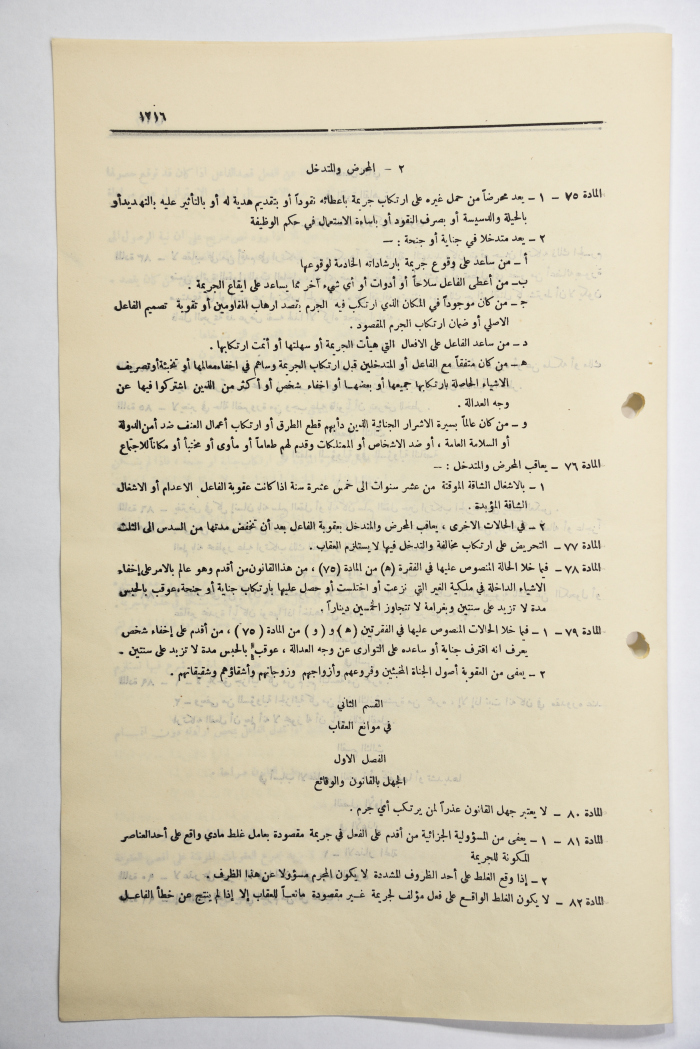 ١٢١٦
٢ - المحرض والمتدخل
المادة ٧٥ - ١ - يعد محرضاً من حمل غيره على ارتكاب جريمة باعطائه نقوداً أو بتقديم هدية له أو بالتأثير عليه بالتهديد أو
بالحيلة والدسيسة أو بصرف النقود أو باساءة الاستعمال في حكم الوظيفة
٢ - يعد متدخلا في جناية أو جنحة : —
أ - من ساعد على وقوع جريمة بارشاداته الخادمة لوقوعها
ب - من أعطى الفاعل سلاحاً أو أدوات أو أي شيء آخر مما يساعد على ايقاع الجريمة .
جـ - من كان موجوداً في المكان الذي ارتكب فيه الجرم بقصد ارهاب المقاومين أو تقوية تصميم الفاعل
الاصلي أو ضمان ارتكاب الجرم المقصود .
د - من ساعد الفاعل على الافعال التي هيأت الجريمة أو سهلتها أو أتمت ارتكابها .
هـ - من كان متفقاً مع الفاعل أو المتدخلين قبل ارتكاب الجريمة وساهم في اخفاء معالمها أو تخبئة أو تصريف
الاشياء الحاصلة بارتكابها جميعها أو بعضها أو اخفاء شخص أو أكثر من الذين اشتركوا فيها عن
وجه العدالة .
و - من كان عالماً بسيرة الاشرار الجنائية الذين دأبهم قطع الطرق أو ارتكاب أعمال العنف ضد أمن الدولة
أو السلامة العامة ، أو ضد الاشخاص أو الممتلكات وقدم لهم طعاماً أو مأوى أو مختبأ أو مكاناً للاجتماع
المادة ٧٦ - يعاقب المحرض والمتدخل : —
١ - بالاشغال الشاقة الموقتة من عشر سنوات الى خمس عشرة سنة اذا كانت عقوبة الفاعل الاعدام أو الاشغال
الشاقة المؤبدة .
٢ - في الحالات الاخرى ، يعاقب المحرض والمتدخل بعقوبة الفاعل بعد أن تخفض مدتها من السدس الى الثلث
المادة ٧٧ - التحريض على ارتكاب مخالفة والتدخل فيها لا يستلزم العقاب .
المادة ٧٨ - فيما خلا الحالة المنصوص عليها في الفقرة (هـ) من المادة (٧٥) ، من هذا القانون من أقدم وهو عالم بالامر على إخفاء
الاشياء الداخلة في ملكية الغير التي نزعت أو اختلست أو حصل عليها بارتكاب جناية أو جنحة، عوقب بالحبس
مدة لا تزيد على سنتين وبغرامة لا تتجاوز الخمسين ديناراً .
المادة ٧٩ - ١ - فيما خلا الحالات المنصوص عليها في الفقرتين (هـ) و ( و ) من المادة ( ٧٥ ) ، من أقدم على إخفاء شخص
يعرف انه اقترف جناية أو ساعده على التوارى عن وجه العدالة ، عوقب بالحبس مدة لا تزيد على سنتين .
٢ - يعفى من العقوبة أصول الجناة المخبئين وفروعهم وأزواجهم وزوجاتهم وأشقاؤهم وشقيقاتهم .
القسم الثاني
في موانع العقاب
الفصل الاول
الجهل بالقانون والوقائع
المادة ٨٠ - لا يعتبر جهل القانون عذراً لمن يرتكب أي جرم .
المادة ٨١ - ١ - يعفى من المسؤولية الجزائية من أقدم على الفعل في جريمة مقصودة بعامل غلط مادي واقع على أحد العناصر
المكونة للجريمة
٢ - إذا وقع الغلط على أحد الظروف المشددة لا يكون المجرم مسؤولا عن هذا الظرف .
المادة ٨٢ - لا يكون الغلط الواقع على فعل مؤلف لجريمة غير مقصودة مانعاً للعقاب إلا إذا لم ينتج عن خطأ الفاعل